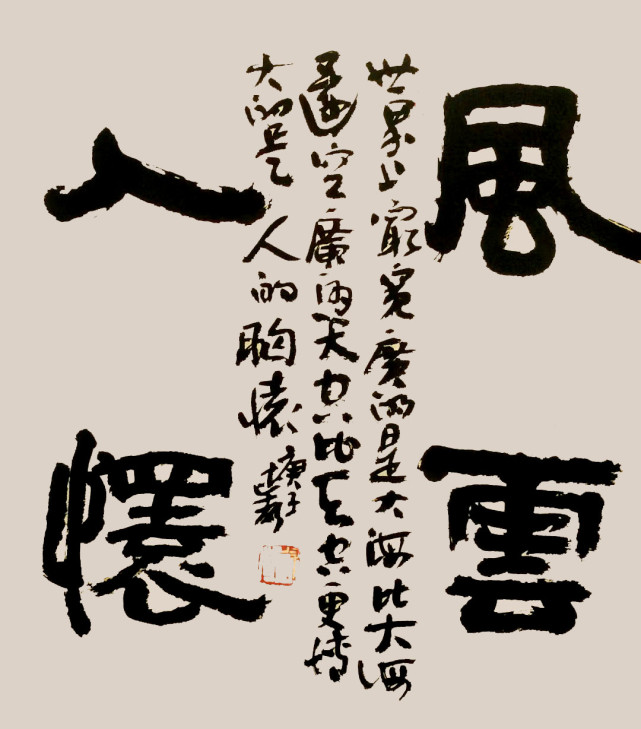 風雲
世界上最寬廣的是大海比大海
空廣的天空比天空更博
大的是人的胸懷
庚子
人懷